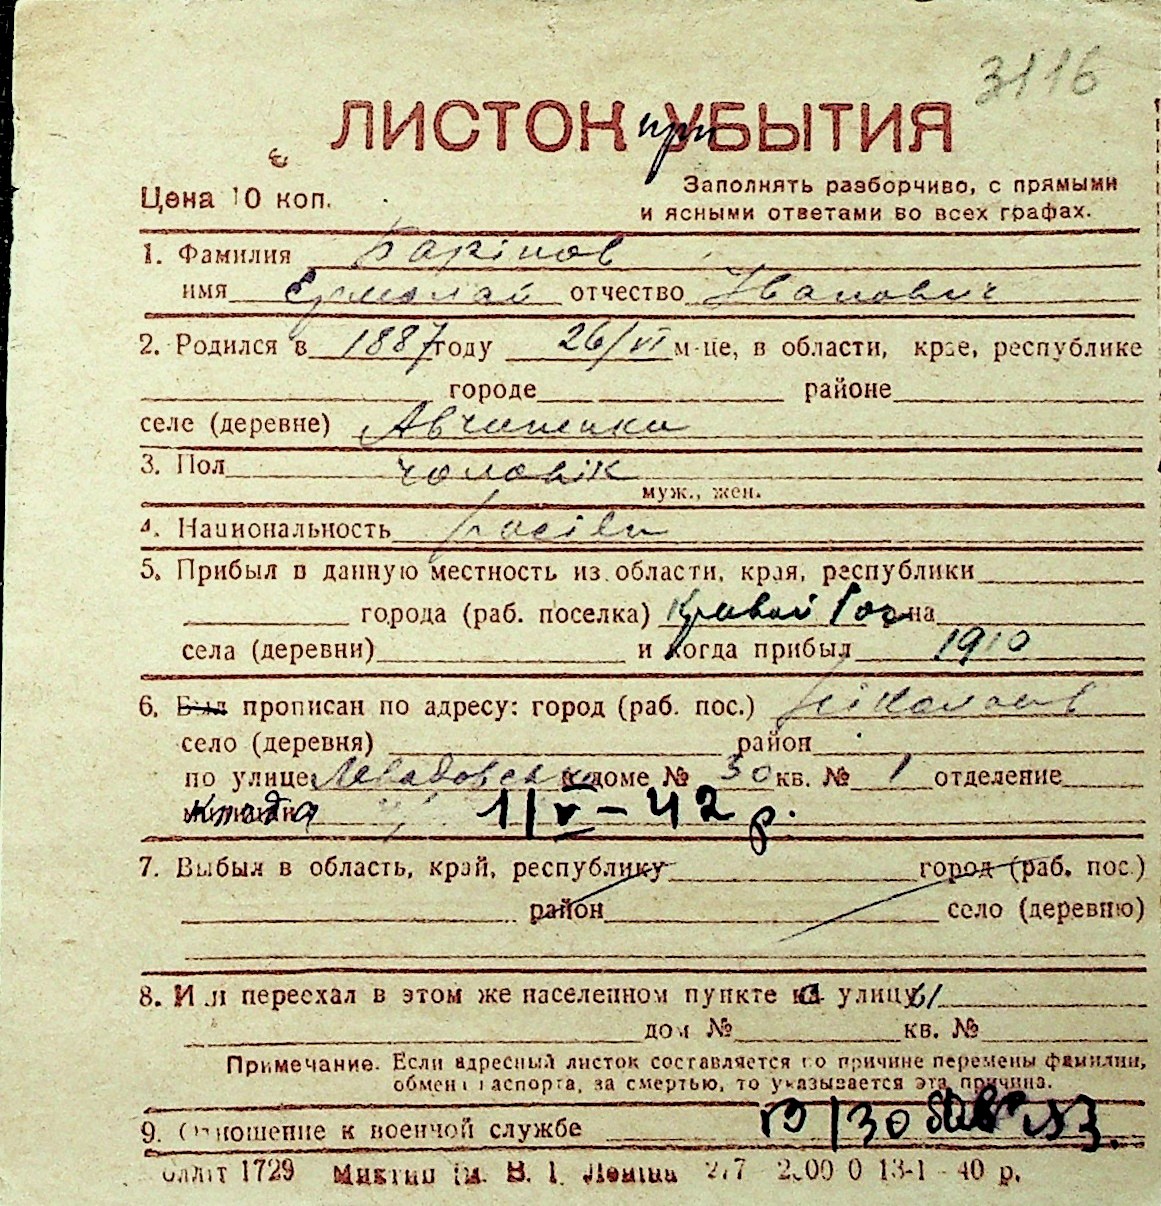 3116
ЛИСТОК при УБЫТИЯ
Цена 10 коп.
Заполнять разборчиво, с прямыми
и ясными ответами во всех графах.
1. Фамилия Барінов
имя Єрмолай отчество Іванович
2. Родился в 1887 году 26/VI м-це, в области, крае, республике
городе районе
селе (деревне)
3. Пол чоловік
муж., жен.
4. Национальность
5. Прибыл в данную местность из области, края, республики
города (раб. поселка) Кривой Рог на
села (деревни) и когда прибыл 1910
6. Был прописан по адресу: город (раб. пос.) Ніколаєв
село (деревня) район
по улице в доме № 30 кв. № 1 отделение
1/V-42 р.
7. Выбыл в область, край, республику город (раб. пос.)
район село (деревню)
8. Или переехал в этом же населенном пункте на улицу
дом № кв. №
Примечание. Если адресный листок составляется по причине перемены фамилии,
обмена паспорта, за смертью, то указывается эта причина.
9. Отношение к военной службе в/зо
1729 им. В. І. Леніна 13-1 40 р.